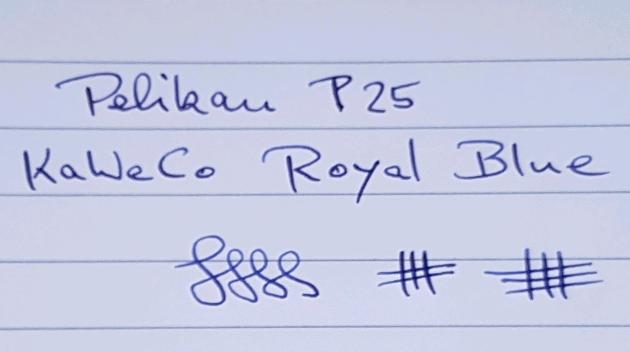 Pelikan P25
KaWeCo Royal Blue